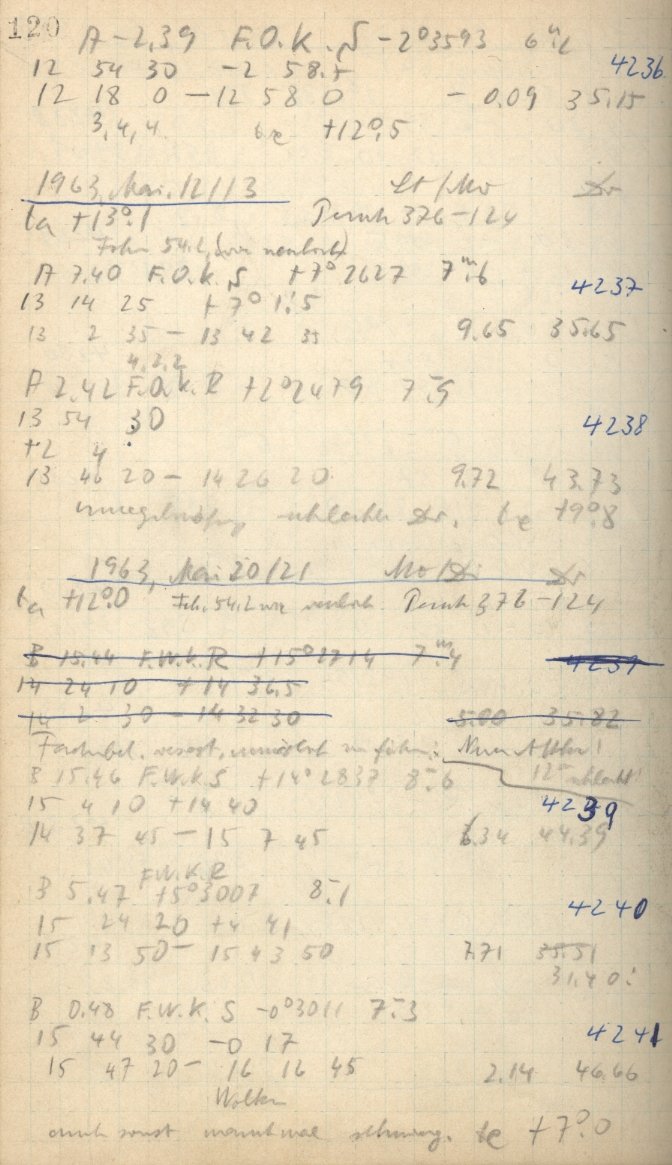 120
A -2,39 F.O.K. S -2°3593 6ᵐ,2
12 54 30 -2 58.5 4236
12 18 0 - 12 58 0 - 0.09 35.15
3, 4, 4. te +12°,5
1963, Mai. 12/13 Dr
ta +13°.1 376-124
54.2,
A 7.40 F.O.K. S +7°2627 7ᵐ.6 4237
13 14 25 +7° 1.'5
13 2 35 - 13 42 35 9.65 35.65
4,3,2
A 2.42 F.O.K. R +2°2479 7ᵐ.5
13 54 30 4238
+2 4
13 46 20 - 14 26 20 9.72 43.73
schlechte Dr. te +9°.8
1963, Mai 20/21 Mo/Di Dr
ta +12°.0 54.2 wie 376-124
B 15.44 F.W.K. R +15°2714 7ᵐ.4 4239
14 24 10 +14 36.5
14 2 30 - 14 32 30 5.00 35.82
12ᵐ schlecht!
B 15.46 F.W.K S +14°2837 8ᵐ.6
15 4 10 +14 40 4239
14 37 45 - 15 7 45 6.34 44.39
F.W.K.R
B 5.47 +5°3007 8ᵐ.1 4240
15 24 20 +4 41
15 13 50 - 15 43 50 7.71 35.51
31.40!
B 0.48 F.W.K. S -0°3011 7ᵐ.3
15 44 30 -0 17 4241
15 47 20 - 16 16 45 2.14 46.66
Wolken
sonst manchmal te +7°.0